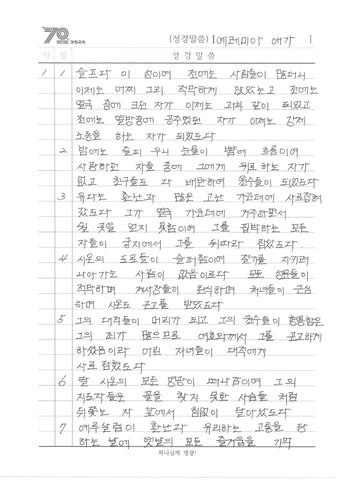 70
(성경말씀) [예레미야 애가 ]
장 절 성 경 말 씀
1 1 슬프다 이 성이여 전에는 사람들이 많더니
이제는 어찌 그리 적막하게 앉았는고 전에는
열국 중에 크던 자가 이제는 과부 같이 되었고
전에는 열방중에 공주였던 자가 이제는 강제
노동을 하는 자가 되었도다
2 밤에는 슬피 우니 눈물이 뺨에 흐름이여
사랑하던 자들 중에 그에게 위로하는 자가
없고 친구들도 다 배반하여 원수들이 되었도다
3 유다는 환난과 많은 고난 가운데에 사로잡혀
갔도다 그가 열국 가운데에 거주하면서
쉴 곳을 얻지 못함이여 그를 핍박하는 모든
자들이 궁지에서 그를 뒤따라 잡았도다
4 시온의 도로들이 슬퍼함이여 절기를 지키려
나아가는 사람이 없음이로다 모든 성문들이
적막하며 제사장들이 탄식하며 처녀들이 근심
하며 시온도 곤고를 받았도다
5 그의 대적들이 머리가 되고 그의 원수들이 형통함은
그의 죄가 많으므로 여호와께서 그를 곤고하게
하셨음이라 어린 자녀들이 대적에게
사로잡혔도다
6 딸 시온의 모든 영광이 떠나감이여 그의
지도자들은 꼴을 찾지 못한 사슴들 처럼
뒤쫓는 자 앞에서 힘없이 달아났도다
7 예루살렘이 환난과 유리하는 고통을 당
하는 날에 옛날의 모든 즐거움을 기억
하나님께 영광!